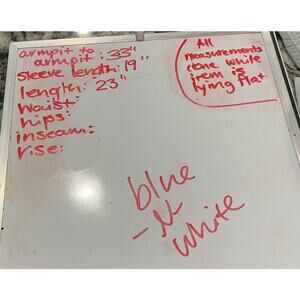 armpit to
armpit: 33"
sleeve length: 19"
length: 23"
waist:
hips:
inseam:
rise:
All
measurements
done while
item is
lying flat
blue
-N-
white